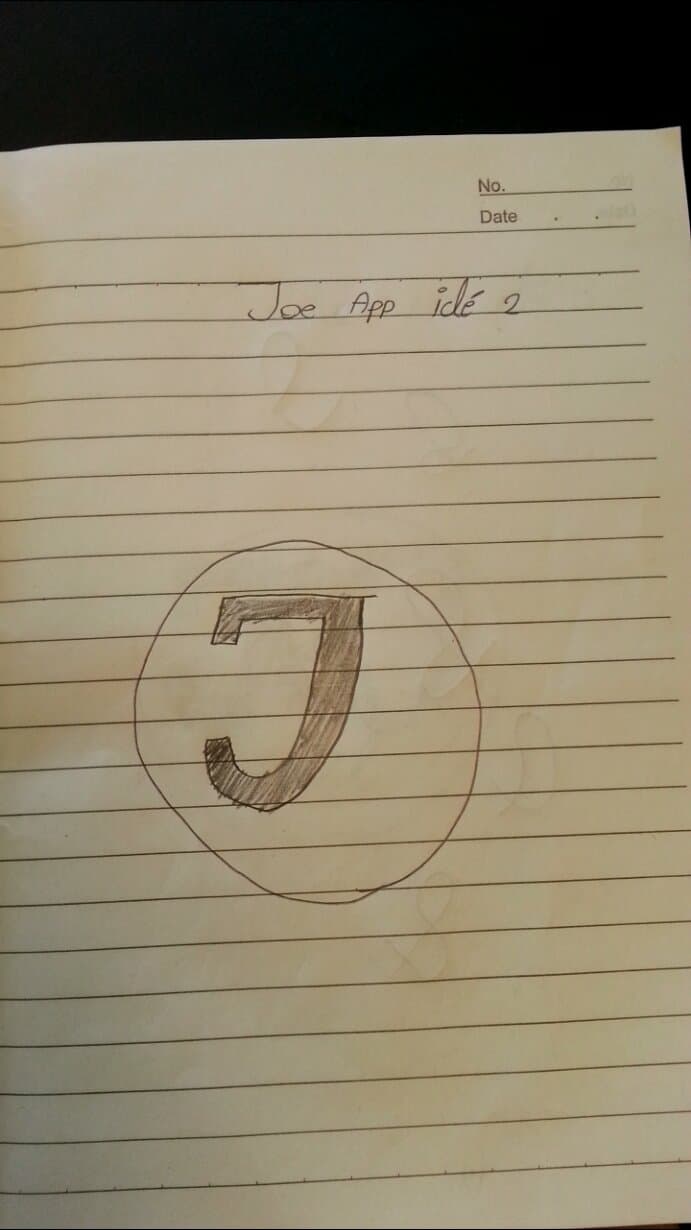 No.
Date . .
Joe App idé 2
J